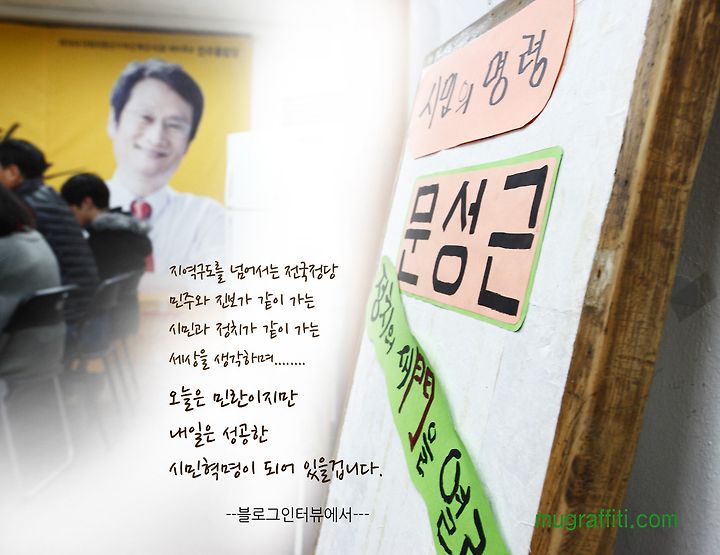 시민의 명령
문성근
지역구도를 넘어서는 전국정당
민주와 진보가 같이 가는
시민과 정치가 같이 가는
세상을 생각하며........
오늘은 민란이지만
내일은 성공한
시민혁명이 되어 있을겁니다.
--블로그인터뷰에서---
mugraffiti.com